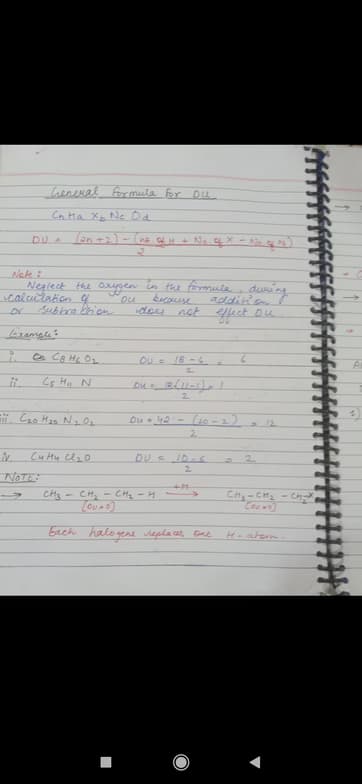 General Formula For DU
CnHa Xb Nc Od
DU = (2n+2) - (no of H + No of X - No of N)
2
Note:
Neglect the oxygen in the formula, during
calculation of DU because addition
or subtraction does not effect DU
Example:
i. C8H6O2 DU = 18-6 = 6
2
ii. C5H11N
2
iii. C20H20N2O2 DU = 42 - (20-2) = 12
2
iv. C4H4Cl2O DU = 10-6 = 2
2
NOTE:
→ CH3 - CH2 - CH2 - H ⟶ CH3 - CH2 - CH2-X
[DU=0] [DU=0]
Each halogene replaces one H-atom.